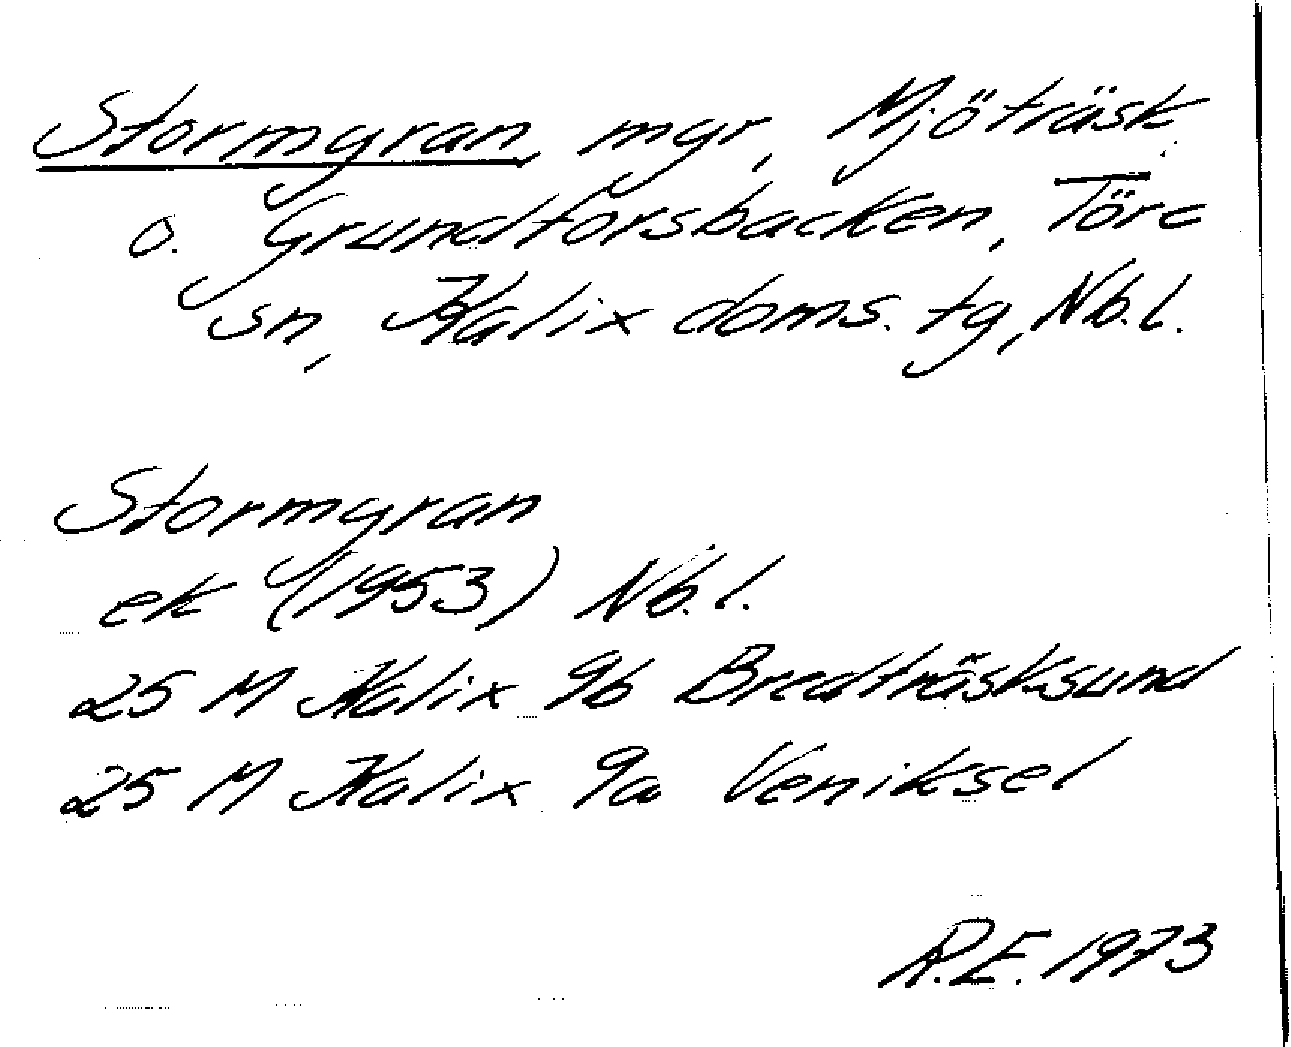 Stormyran, myr, Mjöträsk
o. Grundforsbacken, Töre
sn, Kalix doms. tg, Nb. l.
Stormyran
ek (1953) Nb. l.
25 M Kalix 9b Bredträsksund
25 M Kalix 9a Veniksel
R.E. 1973